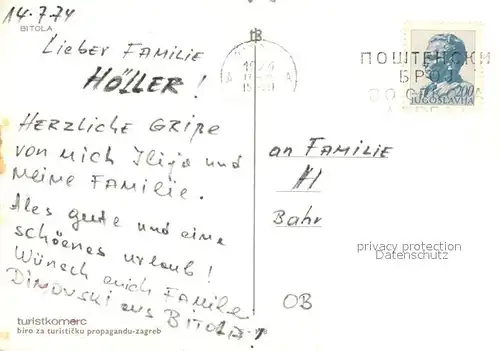 14.7.74
BITOLA
Lieber Familie
HÖLLER!
HERZLICHE GRIPE
von mich Ilija und
meine FAMILIE.
Ales gute und eine
schöenes urlaub!
Wünsch auch Familie
DIMOVSKI aus BITOLA!
turistkomerc
biro za turističku propagandu-zagreb
ПОШТЕНСКИ
БРОЈ
200
JUGOSLAVIJA
an FAMILIE
H
Bahr
privacy protection
Datenschutz
OB